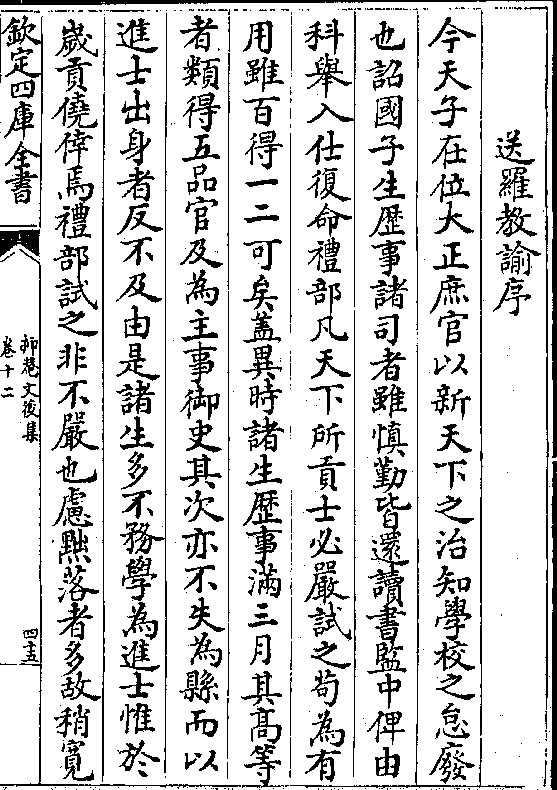 送羅教諭序
今天子在位大正庶官以新天下之治知學校之怠廢
也詔國子生歴事諸司者雖慎勤皆還讀書監中俾由
科舉入仕復命禮部凡天下所貢士必嚴試之茍為有
用雖百得一二可矣葢異時諸生歴事滿三月其髙等
者類得五品官及為主事御史其次亦不失為縣而以
進士出身者反不及由是諸生多不務學為進士惟於
嵗貢僥倖焉禮部試之非不嚴也慮黜落者多故稍寛
欽定四庫全書
抑菴文後集
卷十二
四十五